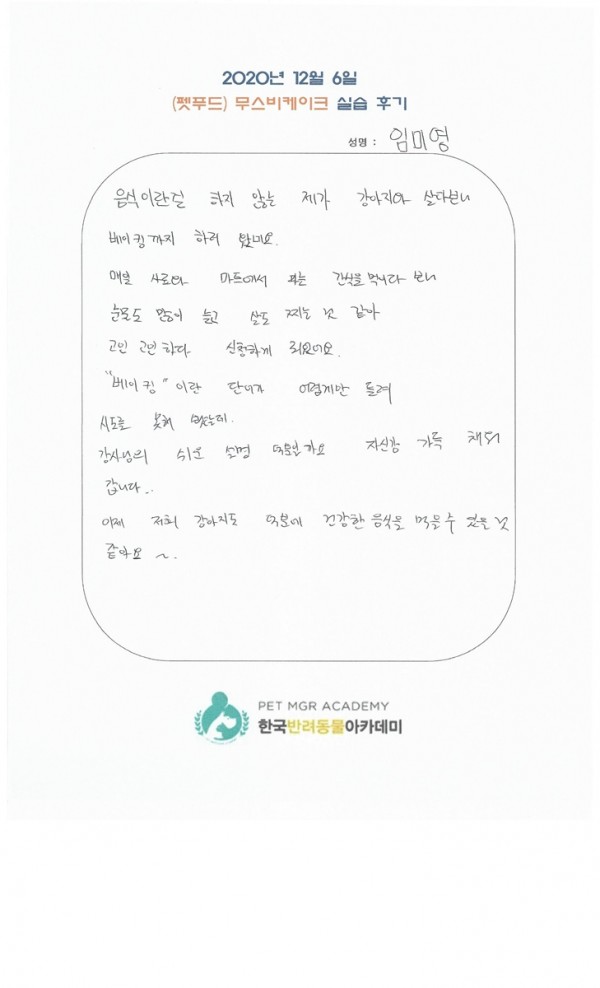 2020년 12월 6일
(펫푸드) 무스비케이크 실습 후기
성명 : 임미영
음식이란걸 하지 않는 제가 강아지와 살다보니
베이킹까지 하러 왔네요.
매일 사료와 마트에서 파는 간식을 먹이다 보니
눈물도 많이 늘고 살도 찌는 것 같아
고민 고민하다 신청하게 되었어요.
"베이킹" 이란 단어가 어렵게만 들려
시도를 못해 봤는데.
강사님의 쉬운 설명 덕분가요 자신감 가득 채워
갑니다..
이제 저희 강아지도 덕분에 건강한 음식을 먹을수 있을 것
같아요 ~.
PET MGR ACADEMY
한국반려동물아카데미